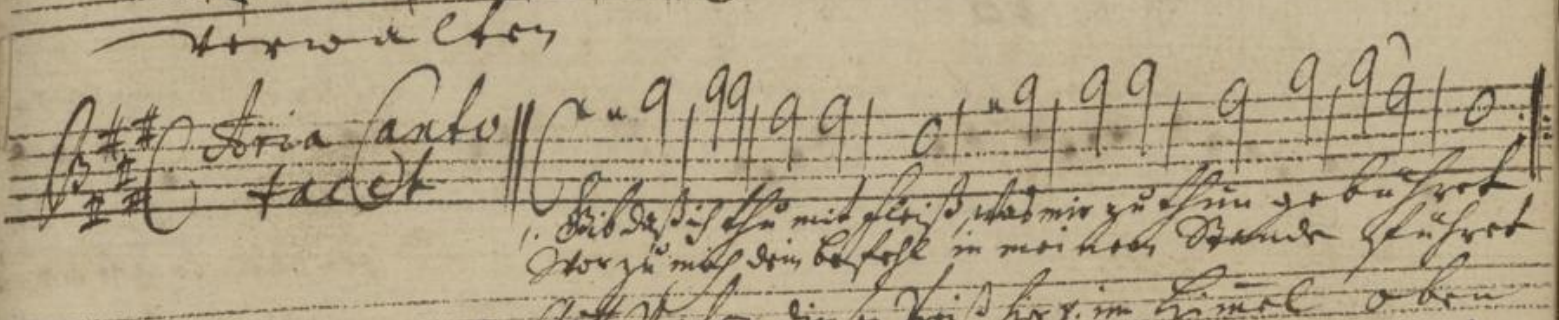 verwalten
Aria Canto
tacet
1. Gib daß ich thu mit fleiß, was mir zu thun gebühret
Worzu mich dein befehl in meinem Stande führet
im Himel oben